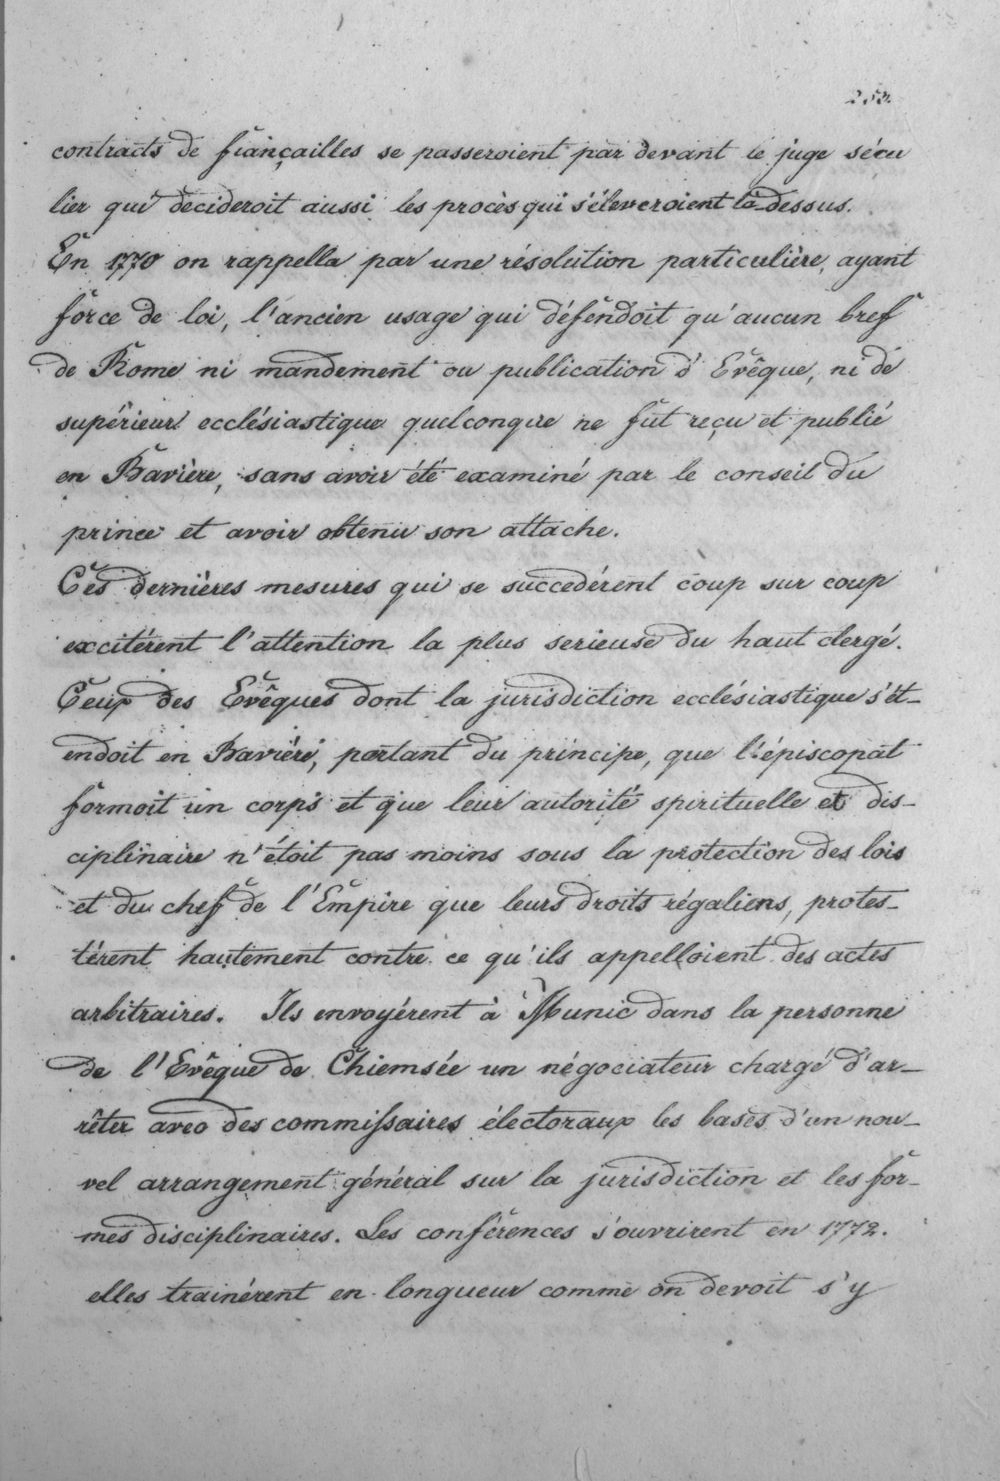 253.
contracts de fiançailles se passeroient par devant le juge sécu
lier qui décideroit aussi les procès qui s'éleveroient là dessus.
En 1770 on rappella par une résolution particulière, ayant
force de loi, l'ancien usage qui défendoit qu'aucun bref
de Rome ni mandement ou publication d'Evêque, ni de
supérieur ecclésiastique quelconque ne fût reçu et publié
en Bavière, sans avoir été examiné par le conseil du
prince et avoir obtenu son attache.
Ces dernières mesures qui se succedérent coup sur coup
excitérent l'attention la plus serieuse du haut clergé.
Ceux des Evêques dont la jurisdiction ecclésiastique s'ét-
endoit en Baviére, partant du principe, que l'épiscopat
formoit un corps et que leur autorité spirituelle et dis-
ciplinaire n'étoit pas moins sous la protection des lois
et du chef de l'Empire que leurs droits régaliens, protes-
térent hautement contre ce qu'ils appelloient des actes
arbitraires. Ils envoyérent à Munic dans la personne
de l'Evêque de Chiemsée un négociateur chargé d'ar-
rêter avec des commissaires électoraux les bases d'un nou-
vel arrangement général sur la jurisdiction et les for-
mes disciplinaires. Les conférences s'ouvrirent en 1772.
elles trainérent en longueur comme on devoit s'y